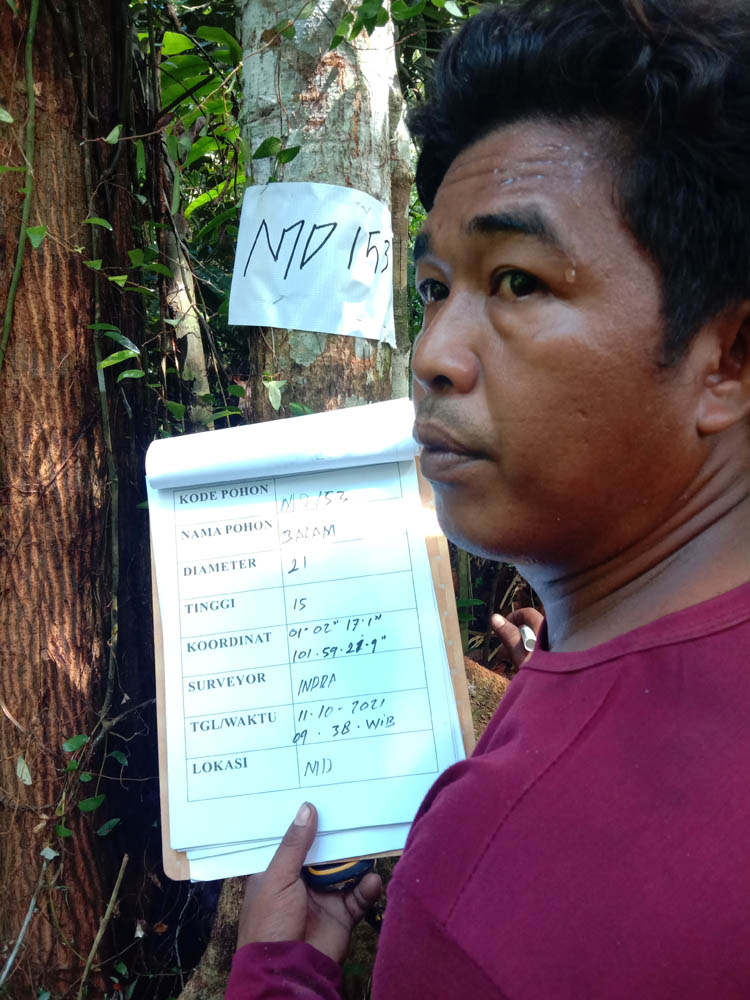 MD 153
KODE POHON MD 153
NAMA POHON BALAM
DIAMETER 21
TINGGI 15
KOORDINAT 01·02" 17·1"
101·59·21·9"
SURVEYOR INDRA
TGL/WAKTU 11·10·2021
09·38·WIB
LOKASI MD